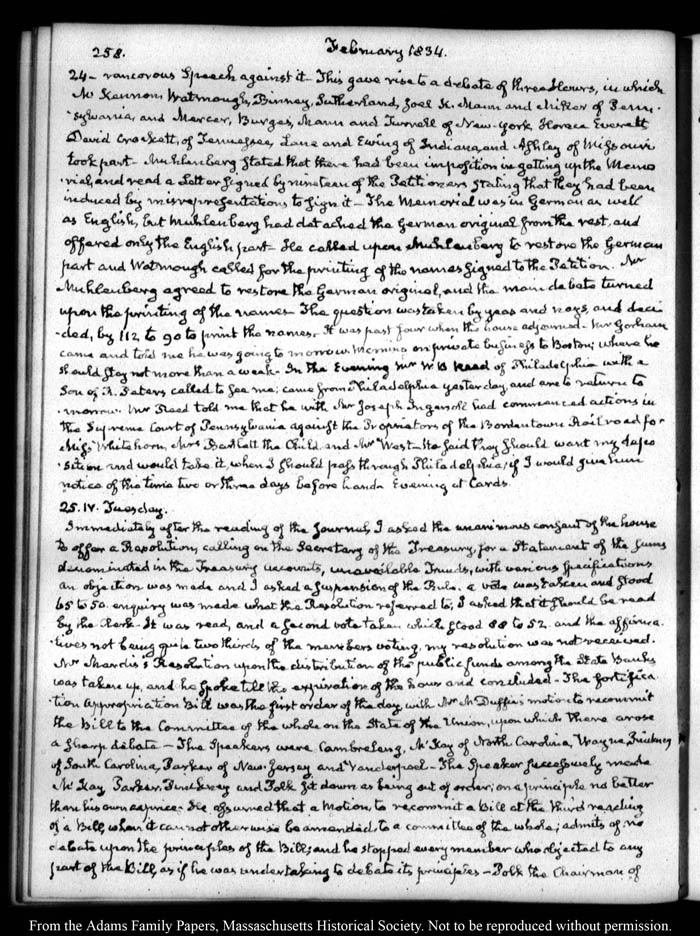 258.
February 1834.
24 – rancorous Speech against it – This gave rise to a debate of three Hours, in which
Mr Kennon, Watmough, Binney, Sutherland, Joel K. Mann and Miller of Penn-
sylvania, and Mercer, Burges, Mann and Turrell of New-York Horace Everett
David Crockett, of Tennessee, Lane and Ewing of Indiana, and Ashley of Missouri
took part – Muhlenberg stated that there had been imposition in getting up the Memo-
rial, and read a Letter signed by nineteen of the Petitioners stating that they had been
induced by misrepresentations to sign it – The Memorial was in German as well
as English, but Muhlenberg had detached the German original from the rest, and
offered only the English part – He called upon Muhlenberg to restore the German
part and Watmough called for the printing of the names signed to the Petition. Mr
Muhlenberg agreed to restore the German original, and the main debate turned
upon the printing of the names – The question was taken by yeas and nays, and deci-
-ded, by 112 to 90 to print the names. It was past four when the house adjourned – Mr Gorham
came and told me he was going to morrow Morning on private business to Boston; where he
should stay not more than a week – In the Evening Mr W B Reed of Philadelphia with a
Son of R. Peters called to see me; came from Philadelphia yesterday, and are to return to
-morrow. Mr Reed told me that he with Mr Joseph Ingersoll had commenced actions in
the Supreme Court of Pennsylvania against the Proprietors of the Bordentown Rail road for
Miss Whitehorn, Mrs Bartlett the Child and Mr West – He said they should want my depo
-sition and would take it, when I should pass through Philadelphia, if I would give him
notice of the time two or three days before hand – Evening at Cards.
25. IV. Tuesday.
Immediately after the reading of the Journal, I asked the unanimous consent of the house
to offer a Resolution, calling on the Secretary of the Treasury, for a Statement of the sums
denominated in the Treasury accounts, unavailable Funds, with various specifications
an objection was made and I asked a suspension of the Rule. a vote was taken and stood
65 to 50. enquiry was made what the Resolution referred to; I asked that it should be read
by the Clerk – It was read, and a second vote taken which stood 88 to 52. and the affirma-
tives not being quite two thirds of the members voting, my resolution was not received.
Mr Mardis's Resolution upon the distribution of the public funds among the State Banks
was taken up, and he spoke till the expiration of the hour and concluded – The fortifica
tion appropriation Bill was the first order of the day, with Mr McDuffie's motion to recommit
the Bill to the Committee of the whole on the State of the Union, upon which there arose
a sharp debate – The Speakers were Cambreleng, McKay of North Carolina, Wayne, Pinckney
of South Carolina, Parker of New-Jersey and Vanderpoel – The Speaker successively made
McKay, Parker, Pinckney and Polk sit down as being out of order; on a principle no better
than his own caprice – He assumed that a Motion to recommit a Bill at the third reading
of a Bill, when it can not otherwise be amended, to a committee of the whole; admits of no
debate upon the principles of the Bill, and he stopped every member who objected to any
part of the Bill, as if he was undertaking to debate its principles – Polk the Chairman of
From the Adams Family Papers, Massachusetts Historical Society. Not to be reproduced without permission.